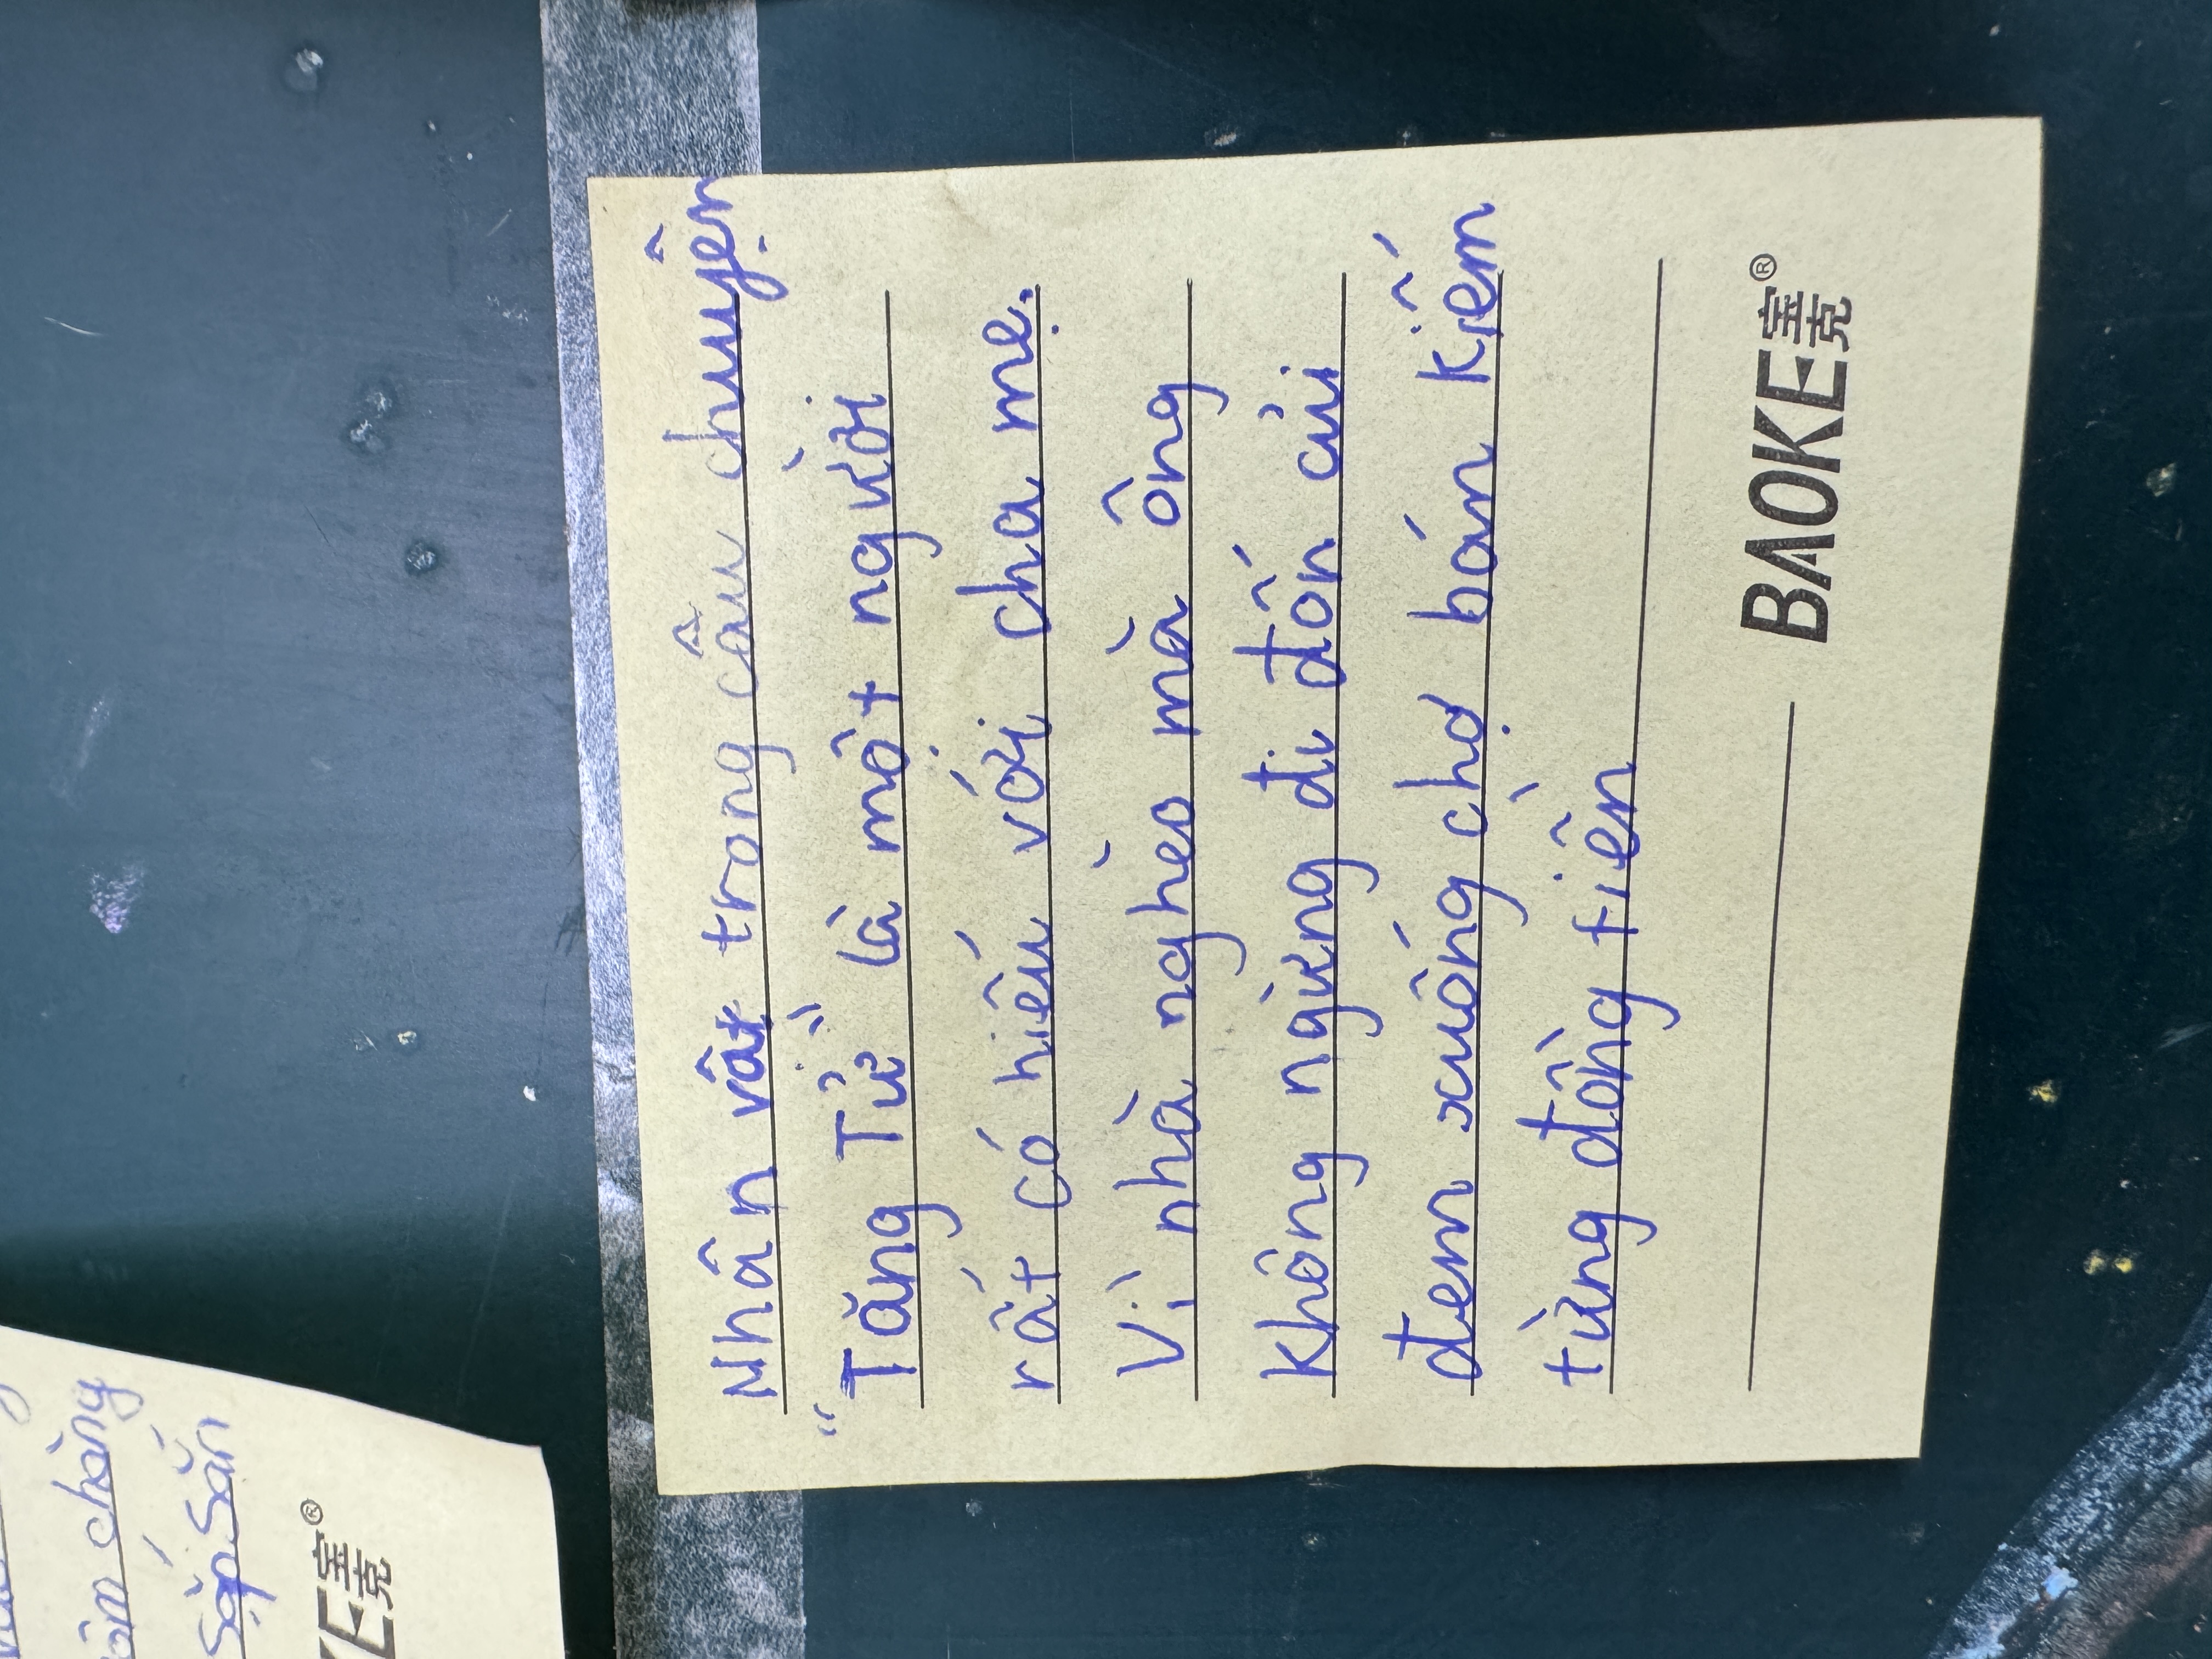 Nhân vật trong câu chuyện
"Tăng Tử" là một người
rất có hiếu với cha mẹ.
Vì nhà nghèo mà ông
không ngừng đi đốn củi
đem xuống chợ bán kiếm
từng đồng tiền
BAOKE宝克®
chàng
Sắp Sẵn
KE宝克®